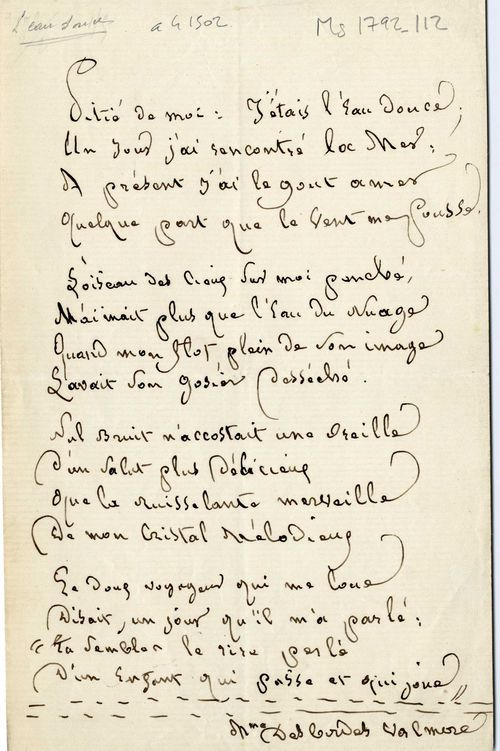 L'eau douce
a 4 1502
Ms 1792-112
Pitié de moi : J'étais l'Eau douce ;
Un Jour j'ai rencontré la Mer :
A présent J'ai le goût amer
Quelque part que le vent me pousse.
L'oiseau des Cieux sur moi penché,
M'aimait plus que l'Eau du Nuage
Quand mon flot plein de son image
Lavait son gosier desséché.
Nul Bruit n'accostait une Oreille
D'un Salut plus Délicieux
Que la ruisselante merveille
De mon Cristal Mélodieux
Le doux voyageur qui me loue
Disait, un jour qu'il m'a parlé :
« Tu sembles le rire perlé
D'un Enfant qui passe et qui joue »
Mme Desbordes Valmore